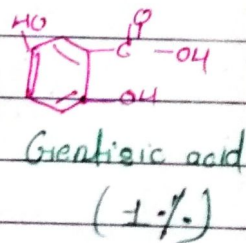 HO
O
C
-OH
OH
Gentisic acid
(1%)